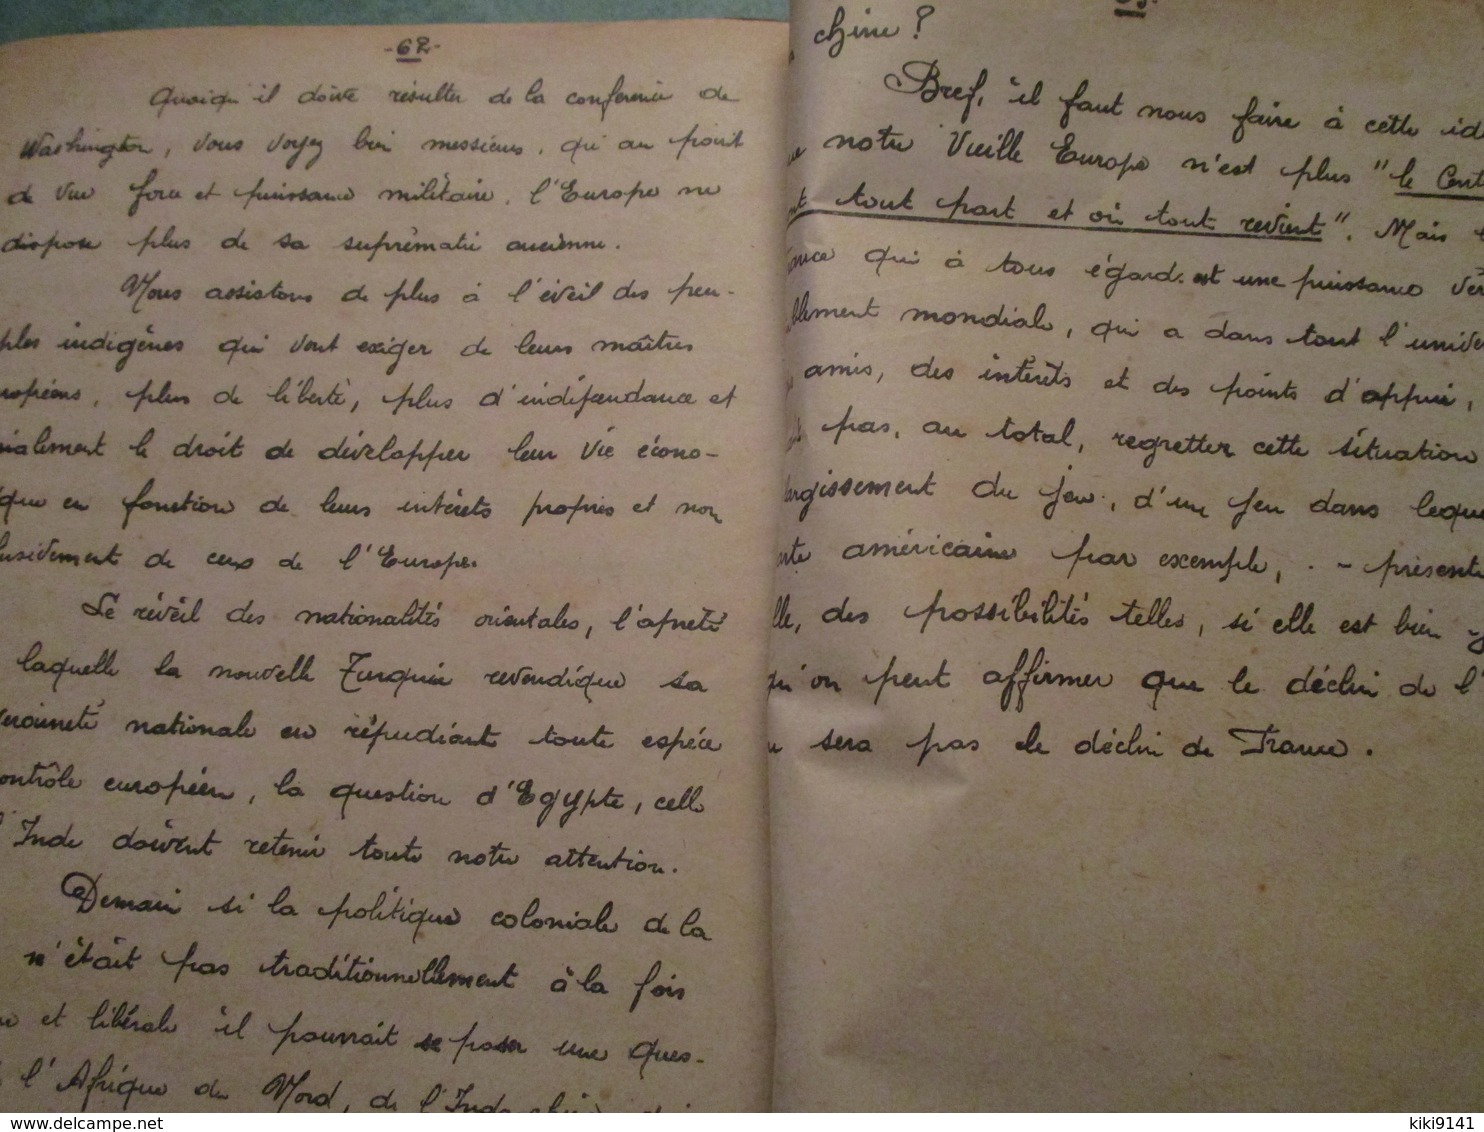 -62-
Quoiqu'il doive résulter de la conférence de
Washington, vous voyez bien messieurs, qu'au point
de vue force et puissance militaire, l'Europe ne
dispose plus de sa suprématie ancienne.
Nous assistons de plus à l'éveil des peu-
ples indigènes qui vont exiger de leurs maîtres
ropéens, plus de liberté, plus d'indépendance et
ialement le droit de développer leur vie écono-
que en fonction de leurs intérêts propres et non
lusivement de ceux de l'Europe.
Le réveil des nationalités orientales, l'apreté
laquelle la nouvelle Turquie revendique sa
veraineté nationale en répudiant toute espèce
ontrôle européen, la question d'Egypte, celle
l'Inde doivent retenir toute notre attention.
Demain si la politique coloniale de la
n'était pas traditionnellement à la fois
et libérale il pourrait se poser une ques-
l'Afrique du Nord, de l'Indo
chine ?
Bref, il faut nous faire à cette idé
notre Vieille Europe n'est plus "le Cent
nt tout part et où tout revient". Mais
rance qui à tous égards est une puissance vér
blement mondiale, qui a dans tout l'unive
amis, des intérêts et des points d'appui,
pas, au total, regretter cette situation
argissement du jeu, d'un jeu dans leque
arte américaine par exemple, - présente
lle, des possibilités telles, si elle est bien j
qu'on peut affirmer que le déclin de l'
sera pas le déclin de France.
kiki9141